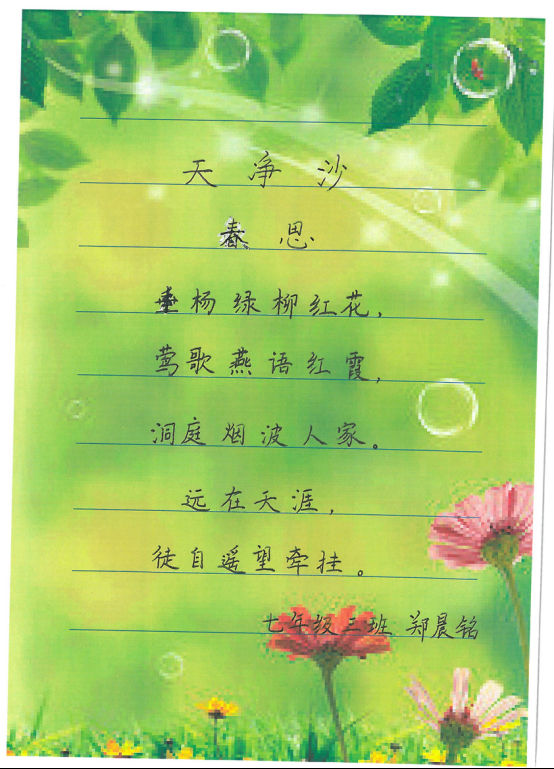 天净沙
春思
垂杨绿柳红花,
莺歌燕语红霞,
洞庭烟波人家。
远在天涯,
徒自遥望牵挂。
七年级三班 郑晨铭